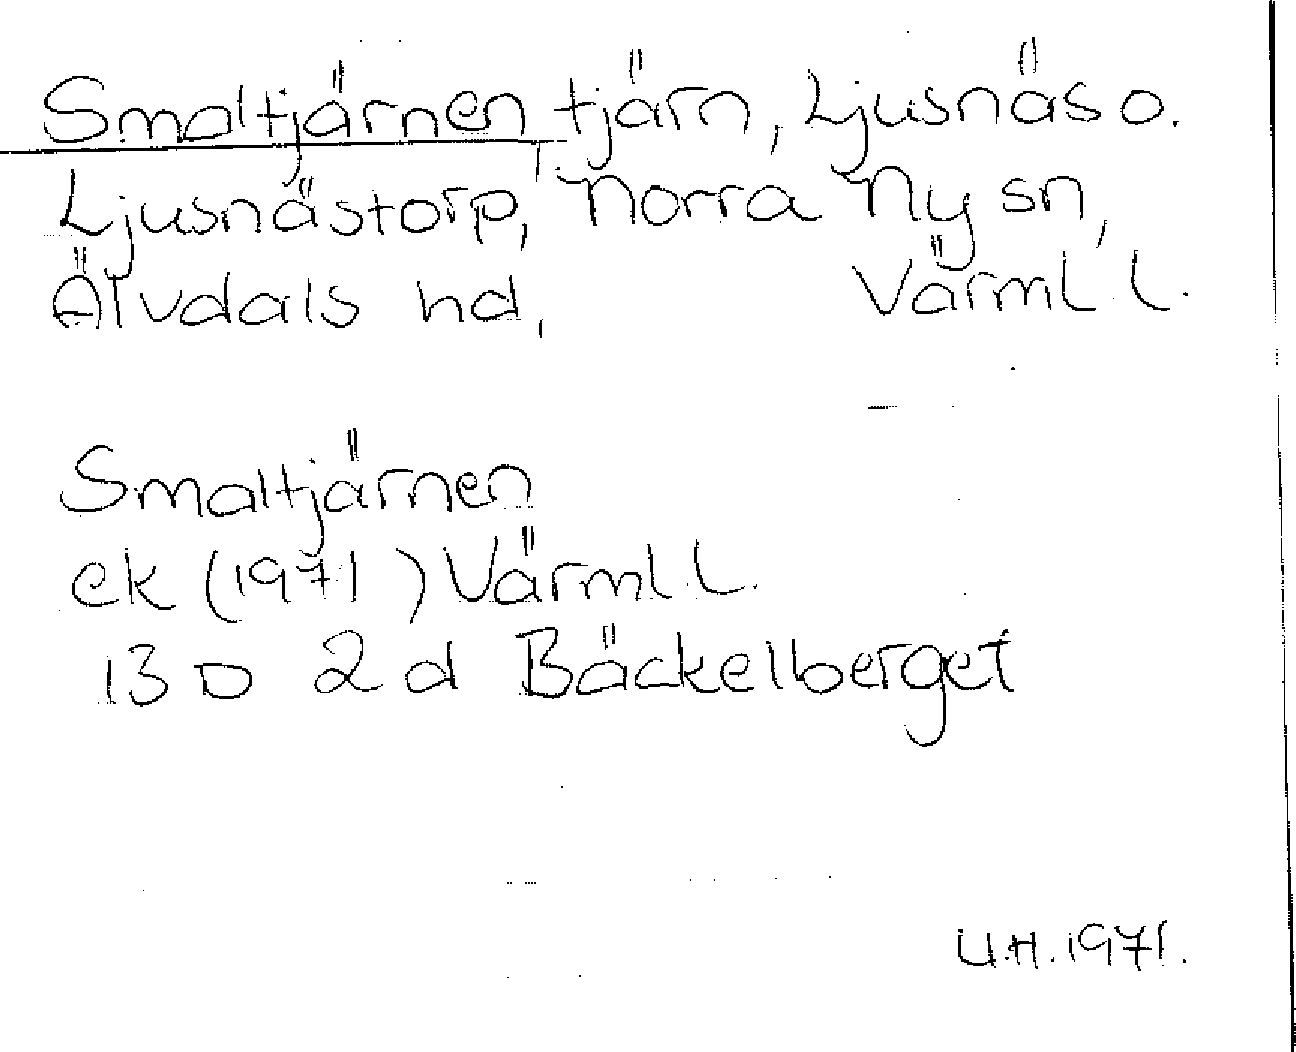 Smaltjärnen tjärn, Ljusnäs o.
Ljusnästorp, Norra Ny sn,
Älvdals hd, Värml l.
Smaltjärnen
ek (1971) Värml l.
13 D 2 d Bäckelberget
U.H. 1971.